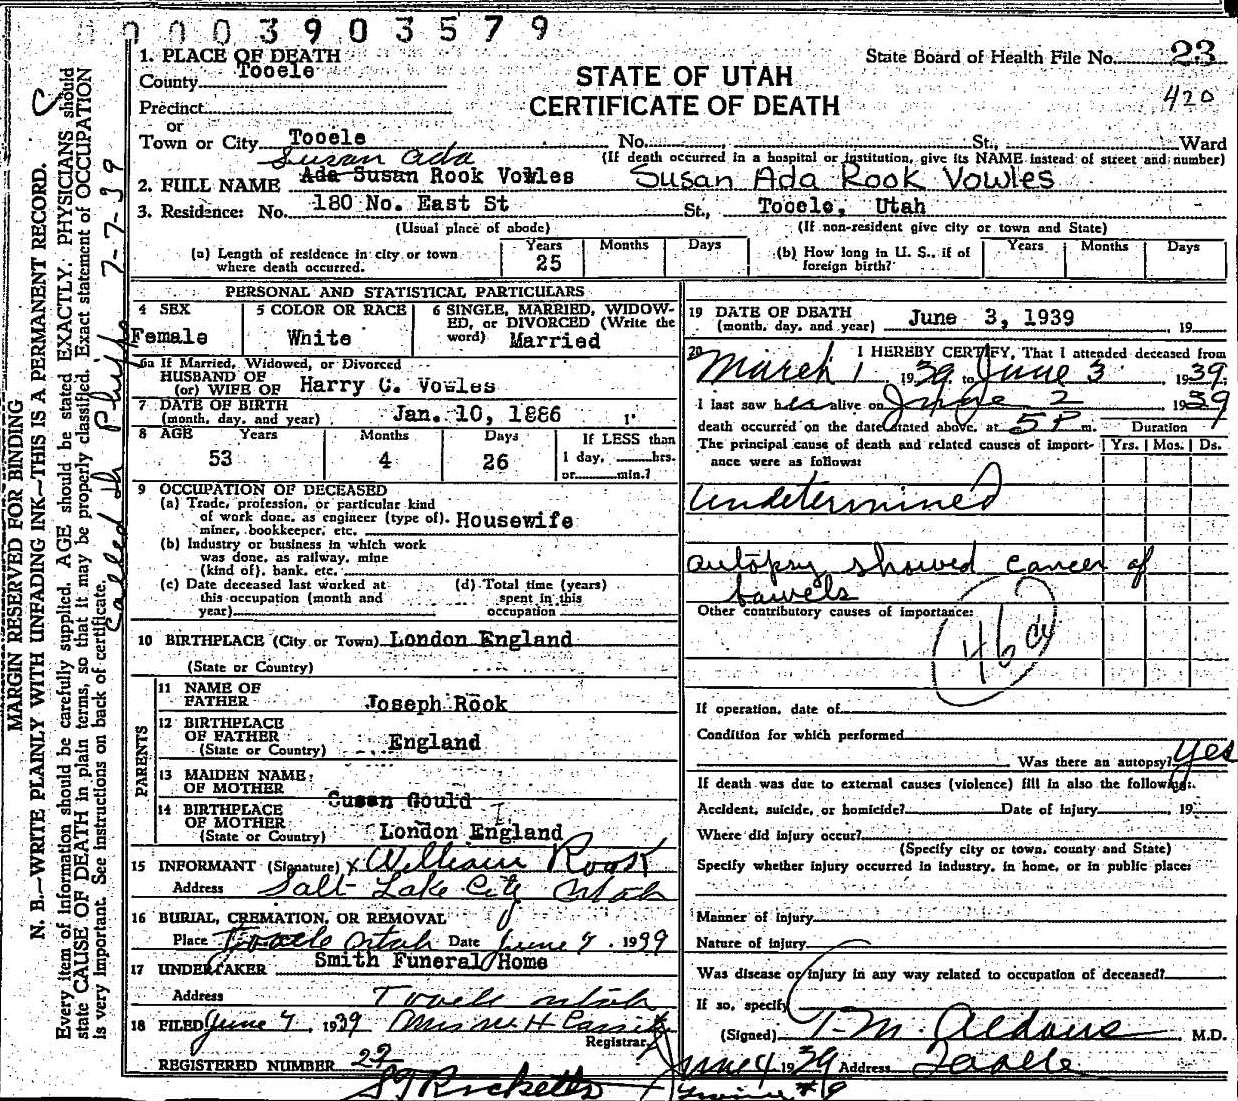 0003903579
1. PLACE OF DEATH
County Tooele
State Board of Health File No. 23
420
STATE OF UTAH
CERTIFICATE OF DEATH
Precinct
or
Town or City Tooele No. , St., Ward
(If death occurred in a hospital or institution, give its NAME instead of street and number)
Susan Ada
2. FULL NAME Ada Susan Rook Vowles Susan Ada Rook Vowles
3. Residence: No. 180 No. East St St., Tooele, Utah
(Usual place of abode) (If non-resident give city or town and State)
(a) Length of residence in city or town where death occurred. Years 25 Months Days
(b) How long in U. S., if of foreign birth? Years Months Days
PERSONAL AND STATISTICAL PARTICULARS
4 SEX
Female
5 COLOR OR RACE
White
6 SINGLE, MARRIED, WIDOW-
ED, or DIVORCED (Write the
word) Married
6a If Married, Widowed, or Divorced
HUSBAND OF
(or) WIFE OF Harry C. Vowles
7 DATE OF BIRTH
(month, day, and year) Jan. 10, 1886
8 AGE Years Months Days If LESS than
53 4 26 1 day, hrs.
or min.?
9 OCCUPATION OF DECEASED
(a) Trade, profession, or particular kind
of work done, as engineer (type of). Housewife
miner, bookkeeper, etc.
(b) Industry or business in which work
was done, as railway, mine
(kind of), bank, etc.
(c) Date deceased last worked at
this occupation (month and
year)
(d) Total time (years)
spent in this
occupation
10 BIRTHPLACE (City or Town) London England
(State or Country)
PARENTS
11 NAME OF
FATHER Joseph Rook
12 BIRTHPLACE
OF FATHER
(State or Country) England
13 MAIDEN NAME
OF MOTHER Susan Gould
14 BIRTHPLACE
OF MOTHER
(State or Country) London England
15 INFORMANT (Signature) x William Rook
Address Salt Lake City Utah
16 BURIAL, CREMATION, OR REMOVAL
Place Tooele Utah Date June 7, 1939
17 UNDERTAKER Smith Funeral Home
Address Tooele Utah
18 FILED June 7, 1939
Registrar
REGISTERED NUMBER 22
19 DATE OF DEATH
(month, day, and year) June 3, 1939 , 19
20 I HEREBY CERTIFY, That I attended deceased from
March 1 1939 to June 3 1939;
I last saw her alive on June 2 1939
death occurred on the date stated above, at 5 P m. Duration
The principal cause of death and related causes of import-
ance were as follows: Yrs. Mos. Ds.
undetermined
autopsy showed cancer of
bowels
Other contributory causes of importance:
46
If operation, date of
Condition for which performed
Was there an autopsy? yes
If death was due to external causes (violence) fill in also the following:
Accident, suicide, or homicide? Date of injury , 19
Where did injury occur?
(Specify city or town, county and State)
Specify whether injury occurred in industry, in home, or in public place:
Manner of injury
Nature of injury
Was disease or injury in any way related to occupation of deceased?
If so, specify
(Signed) T. M. Aldous M.D.
June 4 1939 Address Tooele
MARGIN RESERVED FOR BINDING
N. B.—WRITE PLAINLY WITH UNFADING INK—THIS IS A PERMANENT RECORD. C
Every item of information should be carefully supplied. AGE should be stated EXACTLY. PHYSICIANS should
state CAUSE OF DEATH in plain terms, so that it may be properly classified. Exact statement of OCCUPATION
is very important. See instructions on back of certificate.
7-7-39